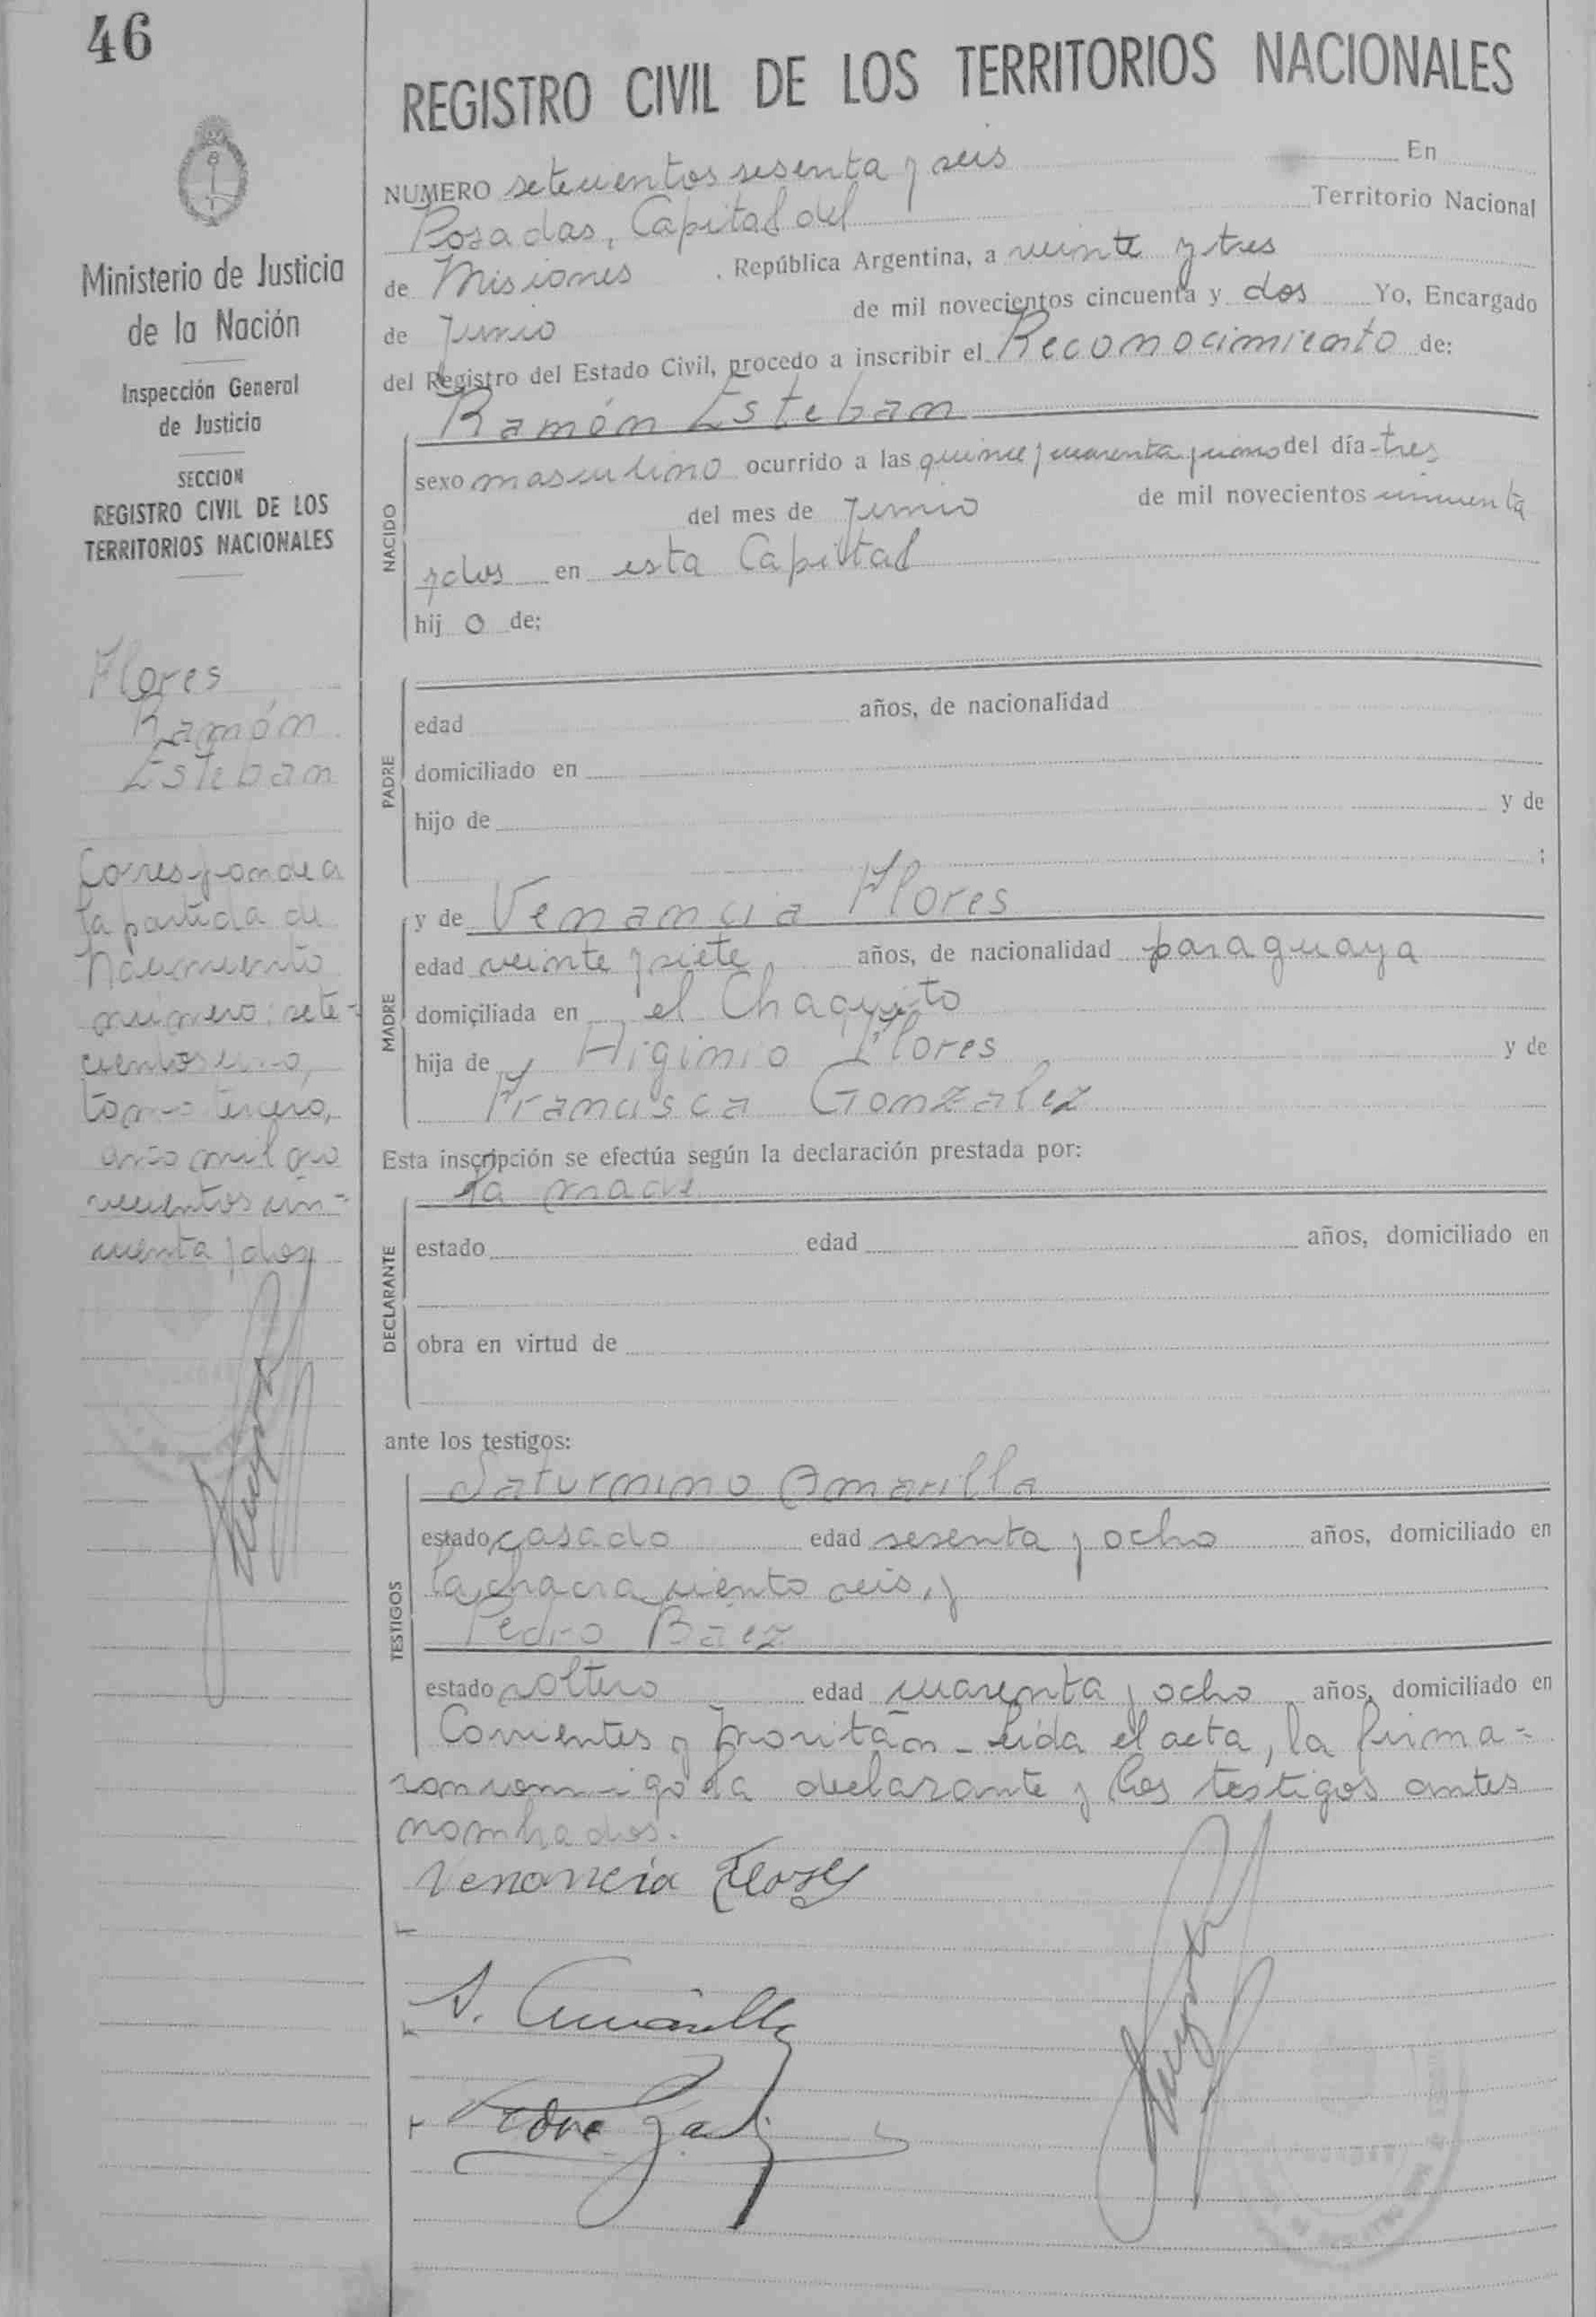 46
Ministerio de Justicia
de la Nación
Inspección General
de Justicia
SECCION
REGISTRO CIVIL DE LOS
TERRITORIOS NACIONALES
Flores
Ramón
Esteban
Corresponde a
la partida de
Nacimiento
número: sete-
cientos uno,
tomo tercero,
año mil no
vecientos cin-
cuenta y dos
REGISTRO CIVIL DE LOS TERRITORIOS NACIONALES
NUMERO setecientos sesenta y seis En
Posadas, Capital del Territorio Nacional
de Misiones , República Argentina, a veinte y tres
de Junio de mil novecientos cincuenta y dos Yo, Encargado
del Registro del Estado Civil, procedo a inscribir el Reconocimiento de:
Ramón Esteban
NACIDO
sexo masculino ocurrido a las quince y cuarenta y uno del día tres
del mes de Junio de mil novecientos cincuenta
y dos en esta Capital
hij o de;
PADRE
edad años, de nacionalidad
domiciliado en
hijo de y de
;
MADRE
y de Venancia Flores
edad veinte y siete años, de nacionalidad paraguaya
domiciliada en el Chaquito
hija de Higinio Flores y de
Francisca Gonzalez
Esta inscripción se efectúa según la declaración prestada por:
la madre
DECLARANTE
estado edad años, domiciliado en
obra en virtud de
ante los testigos:
TESTIGOS
Saturnino Amarilla
estado casado edad sesenta y ocho años, domiciliado en
la chacra ciento seis, y
Pedro Baez
estado soltero edad cuarenta y ocho años, domiciliado en
Corrientes y - Leida el acta, la firma-
ron conmigo la declarante y los testigos antes
nombrados.
Venancia Flores
S. Amarilla